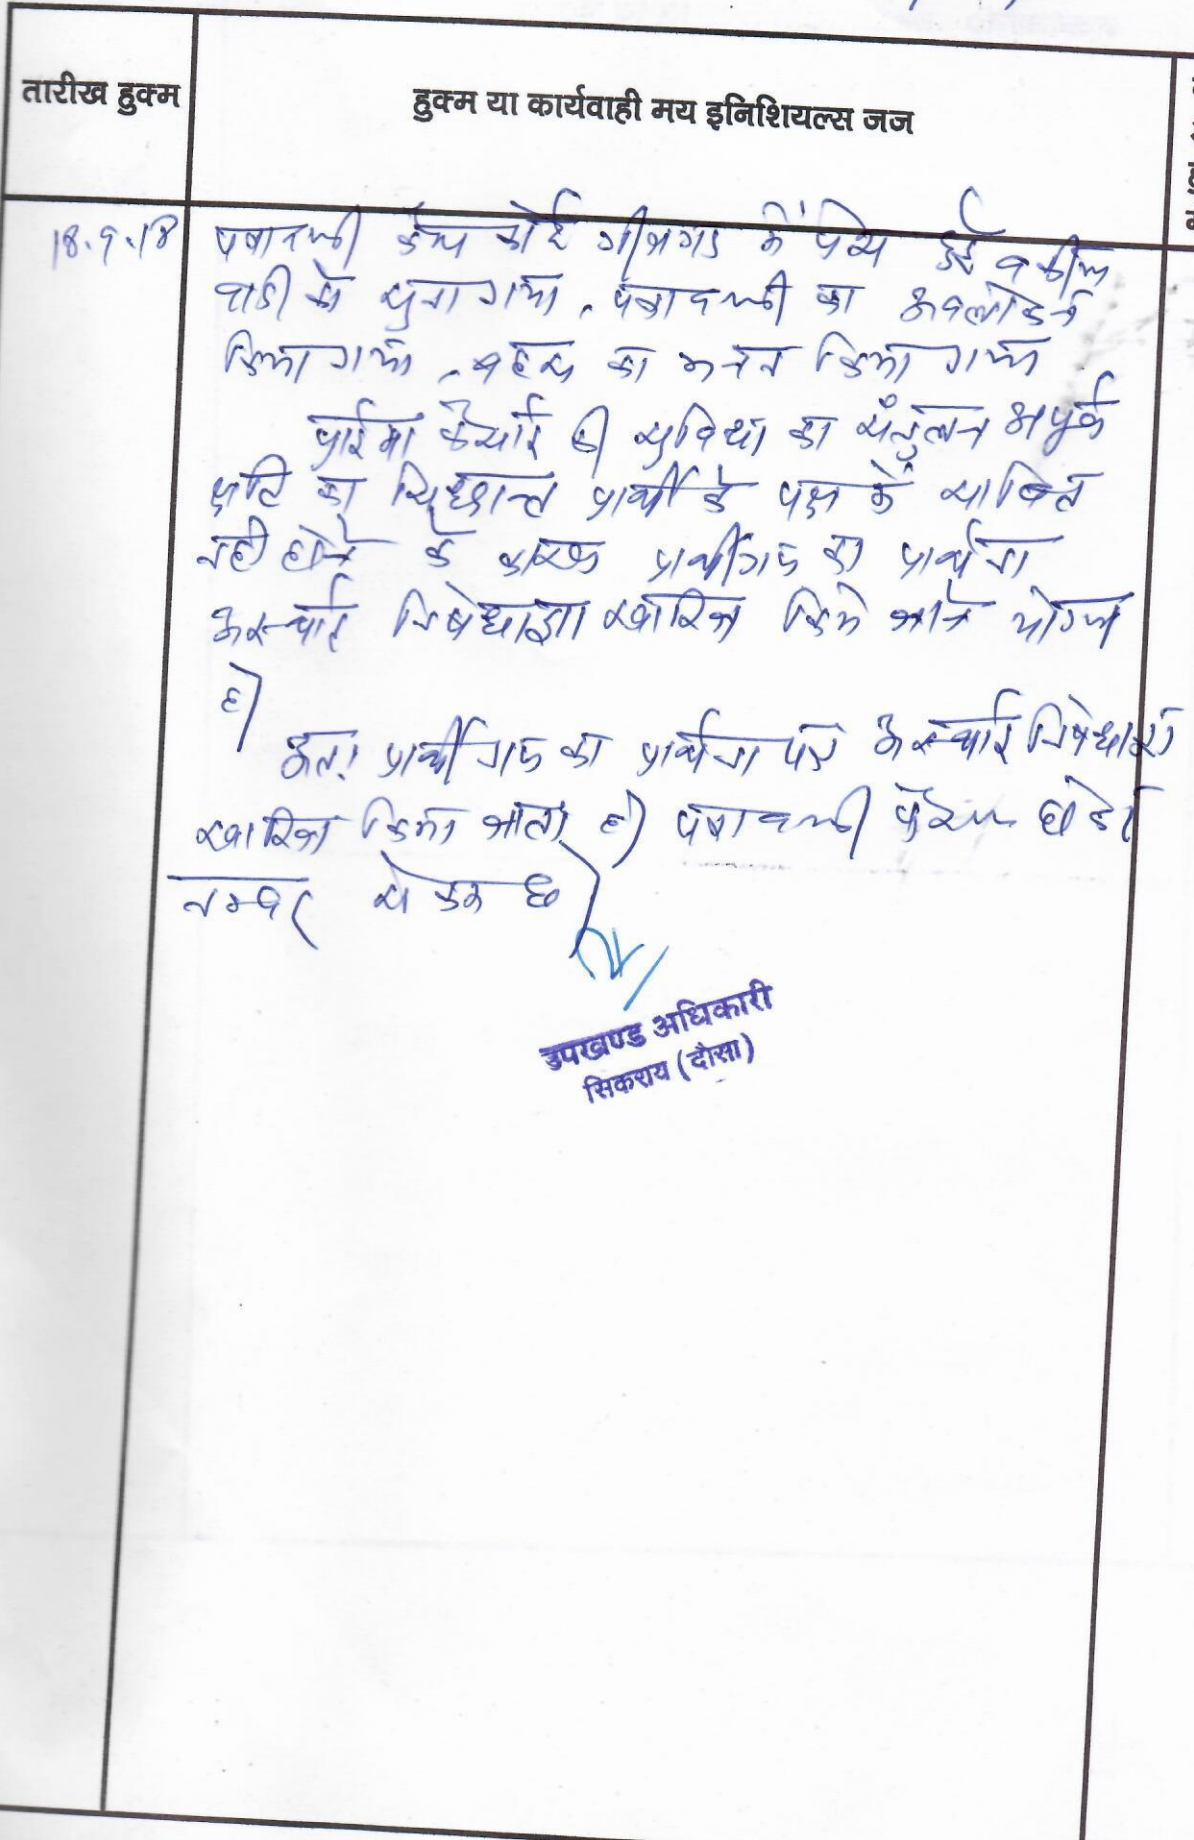 तारीख हुक्म
हुक्म या कार्यवाही मय इनिशियल्स जज
18.9.18
पत्रावली केम्प कोर्ट गीजगढ में पेश हुई वकील
वादी को सुना गया, पत्रावली का अवलोकन
किया गया, बहस का मनन किया गया
प्राईमा केसाई की सुविधा का संतुलन अपूर्ण
क्षति का सिद्धान्त प्रार्थी के पक्ष में साबित
नही होने के कारण प्रार्थीगण का प्रार्थना
अस्थाई निषेधाज्ञा खारिज किये जाने योग्य
है।
अतः प्रार्थीगण का प्रार्थना पत्र अस्थाई निषेधाज्ञा
खारिज किया जाता है। पत्रावली फैसल होकर
नम्बर से कम हो
उपखण्ड अधिकारी
सिकराय (दौसा)